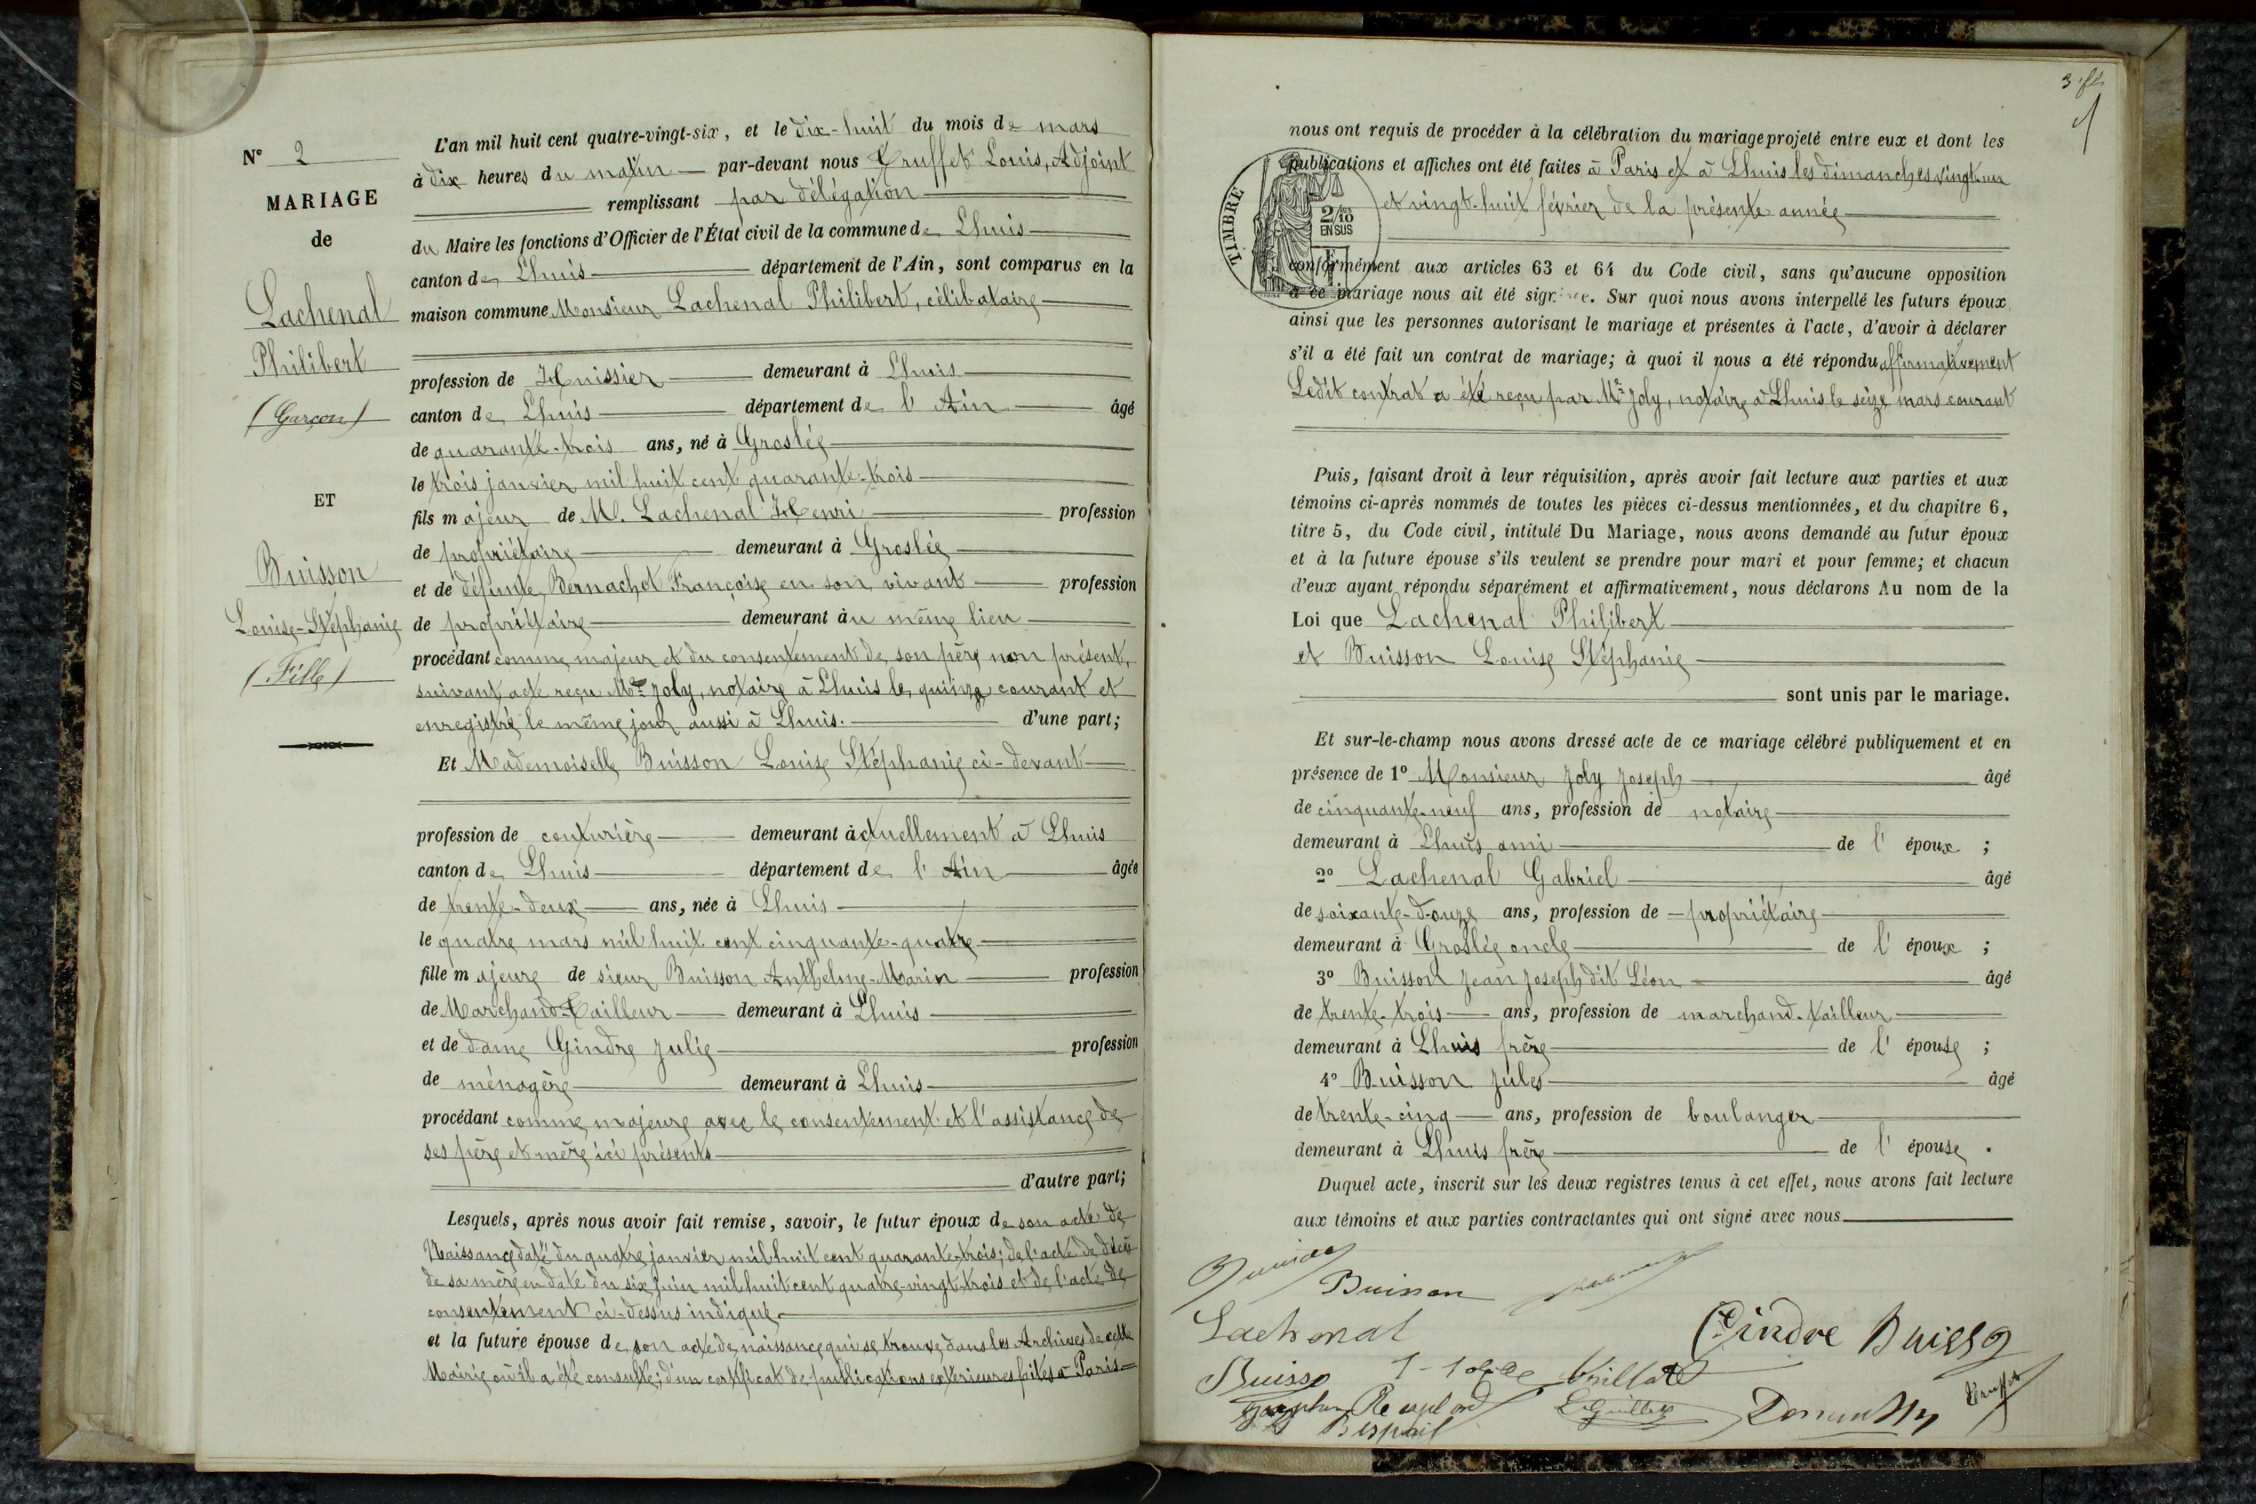 N° 2
MARIAGE
de
Lachenal
Philibert
(Garçon)
ET
Buisson
Louise-Stéphanie
(Fille)
L'an mil huit cent quatre-vingt-six, et le dix-huit du mois de mars
à dix heures du matin par-devant nous Truffet Louis, Adjoint
remplissant par délégation
du Maire les fonctions d'Officier de l'État civil de la commune de Lhuis
canton de Lhuis département de l'Ain, sont comparus en la
maison commune Monsieur Lachenal Philibert, célibataire
profession de Huissier demeurant à Lhuis
canton de Lhuis département de l'Ain âgé
de quarante-trois ans, né à Groslée
le trois janvier mil huit cent quarante-trois
fils majeur de M. Lachenal Henri profession
de propriétaire demeurant à Groslée
et de défunte Bernachot Françoise en son vivant profession
de propriétaire demeurant au même lieu
procédant comme majeur et du consentement de son père non présent,
suivant acte reçu Me Joly, notaire à Lhuis le quinze courant et
enregistré le même jour aussi à Lhuis. d'une part;
Et Mademoiselle Buisson Louise Stéphanie ci-devant
profession de couturière demeurant actuellement à Lhuis
canton de Lhuis département de l'Ain âgée
de trente-deux ans, née à Lhuis
le quatre mars mil huit cent cinquante-quatre
fille majeure de sieur Buisson Anthelme-Marin profession
de Marchand-Tailleur demeurant à Lhuis
et de dame Gindre Julie profession
de ménagère demeurant à Lhuis
procédant comme majeure avec le consentement et l'assistance de
ses père et mère ici présents
d'autre part;
Lesquels, après nous avoir fait remise, savoir, le futur époux de son acte de
Naissance daté du quatre janvier mil huit cent quarante-trois; de l'acte de décès
de sa mère en date du six juin mil huit cent quatre-vingt-trois et de l'acte de
consentement ci-dessus indiqué
et la future épouse de son acte de naissance qui se trouve dans les Archives de cette
Mairie où il a été consulté; d'un certificat de publications extérieures faites à Paris=
nous ont requis de procéder à la célébration du mariage projeté entre eux et dont les
publications et affiches ont été faites à Paris et à Lhuis les dimanches vingt-un
et vingt-huit février de la présente année
TIMBRE
2/10
EN SUS
conformément aux articles 63 et 64 du Code civil, sans qu'aucune opposition
à ce mariage nous ait été signifiée. Sur quoi nous avons interpellé les futurs époux,
ainsi que les personnes autorisant le mariage et présentes à l'acte, d'avoir à déclarer
s'il a été fait un contrat de mariage; à quoi il nous a été répondu affirmativement
Ledit contrat a été reçu par Me Joly, notaire à Lhuis le seize mars courant
Puis, faisant droit à leur réquisition, après avoir fait lecture aux parties et aux
témoins ci-après nommés de toutes les pièces ci-dessus mentionnées, et du chapitre 6,
titre 5, du Code civil, intitulé Du Mariage, nous avons demandé au futur époux
et à la future épouse s'ils veulent se prendre pour mari et pour femme; et chacun
d'eux ayant répondu séparément et affirmativement, nous déclarons Au nom de la
Loi que Lachenal Philibert
et Buisson Louise Stéphanie
sont unis par le mariage.
Et sur-le-champ nous avons dressé acte de ce mariage célébré publiquement et en
présence de 1° Monsieur Joly Joseph âgé
de cinquante-neuf ans, profession de notaire
demeurant à Lhuis ami de l'époux ;
2° Lachenal Gabriel âgé
de soixante-douze ans, profession de propriétaire
demeurant à Groslée oncle de l'époux ;
3° Buisson Jean Joseph dit Léon âgé
de trente-trois ans, profession de marchand-tailleur
demeurant à Lhuis frère de l'épouse ;
4° Buisson Jules âgé
de trente-cinq ans, profession de boulanger
demeurant à Lhuis frère de l'épouse .
Duquel acte, inscrit sur les deux registres tenus à cet effet, nous avons fait lecture
aux témoins et aux parties contractantes qui ont signé avec nous
Buisson
Lachenal
Gindre Buisso
Buisso
Truffet